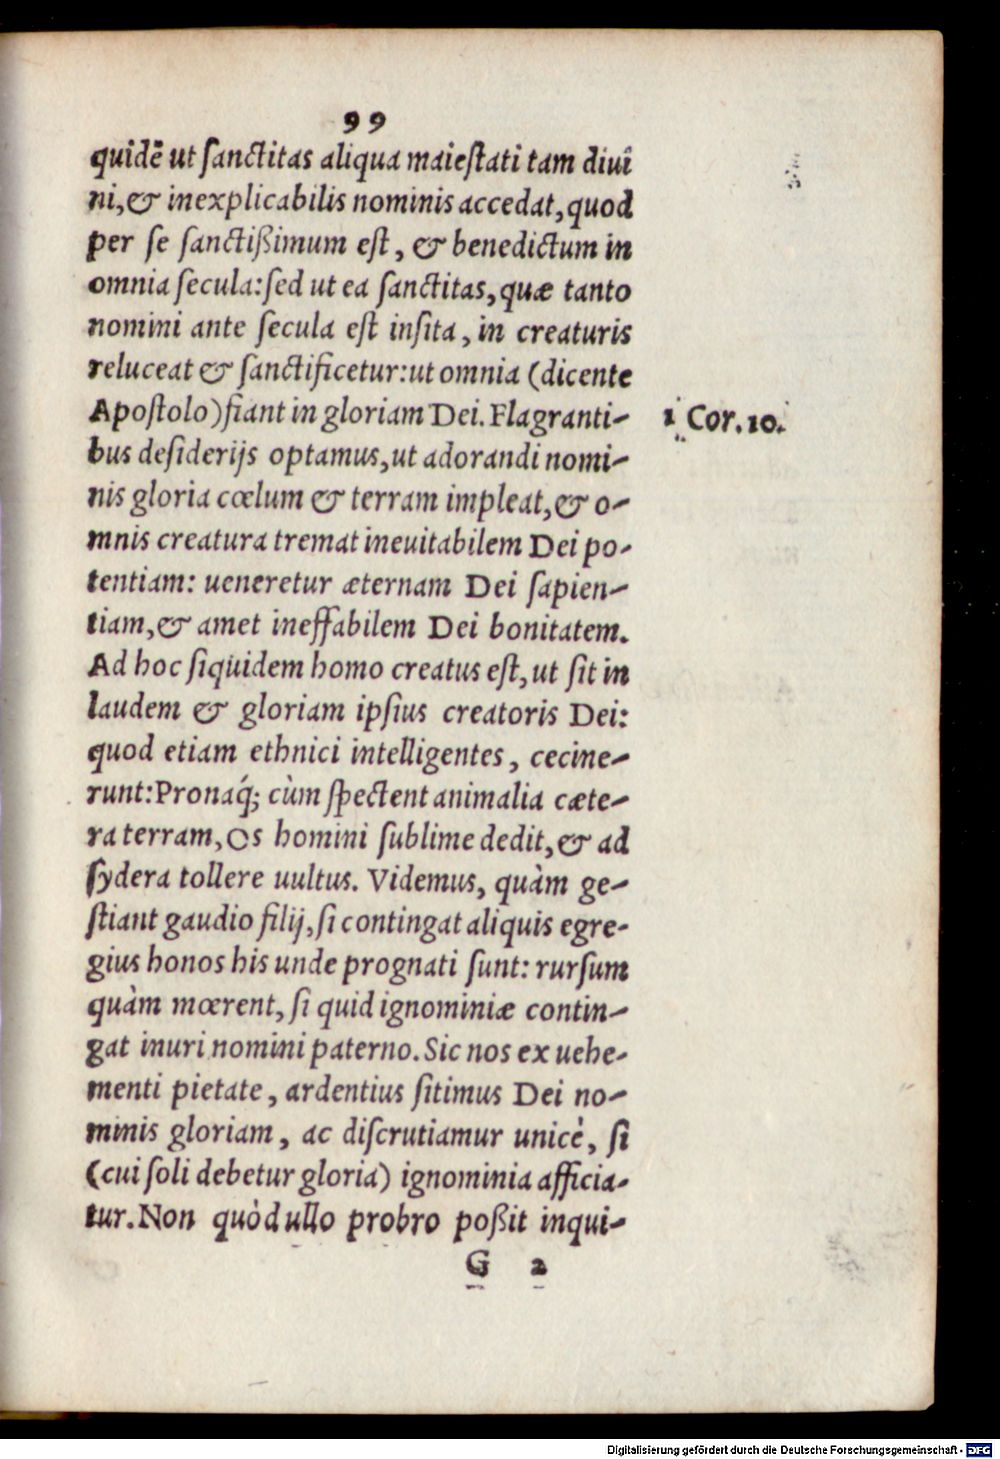 99
quidē ut ſanctitas aliqua maieſtati tam diui
ni,& inexplicabilis nominis accedat,quod
per ſe ſanctißimum eſt, & benedictum in
omnia ſecula:ſed ut ea ſanctitas,quæ tanto
nomini ante ſecula eſt inſita, in creaturis
reluceat & ſanctificetur:ut omnia (dicente
Apoſtolo)fiant in gloriam Dei. Flagranti-
1 Cor. 10.
bus deſiderijs optamus,ut adorandi nomi-
nis gloria cœlum & terram impleat,& o-
mnis creatura tremat ineuitabilem Dei po-
tentiam: ueneretur æternam Dei ſapien-
tiam,& amet ineffabilem Dei bonitatem.
Ad hoc ſiquidem homo creatus eſt,ut ſit in
laudem & gloriam ipſius creatoris Dei:
quod etiam ethnici intelligentes, cecine-
runt:Pronaq́; cùm ſpectent animalia cæte-
ra terram,Os homini ſublime dedit,& ad
ſydera tollere uultus. Videmus, quàm ge-
ſtiant gaudio filij,ſi contingat aliquis egre-
gius honos his unde prognati ſunt: rurſum
quàm mœrent, ſi quid ignominiæ contin-
gat inuri nomini paterno. Sic nos ex uehe-
menti pietate, ardentius ſitimus Dei no-
minis gloriam, ac diſcrutiamur unicè, ſi
(cui ſoli debetur gloria) ignominia afficia-
tur. Non quòd ullo probro poßit inqui-
G 2
Digitalisierung gefördert durch die Deutsche Forschungsgemeinschaft - DFG